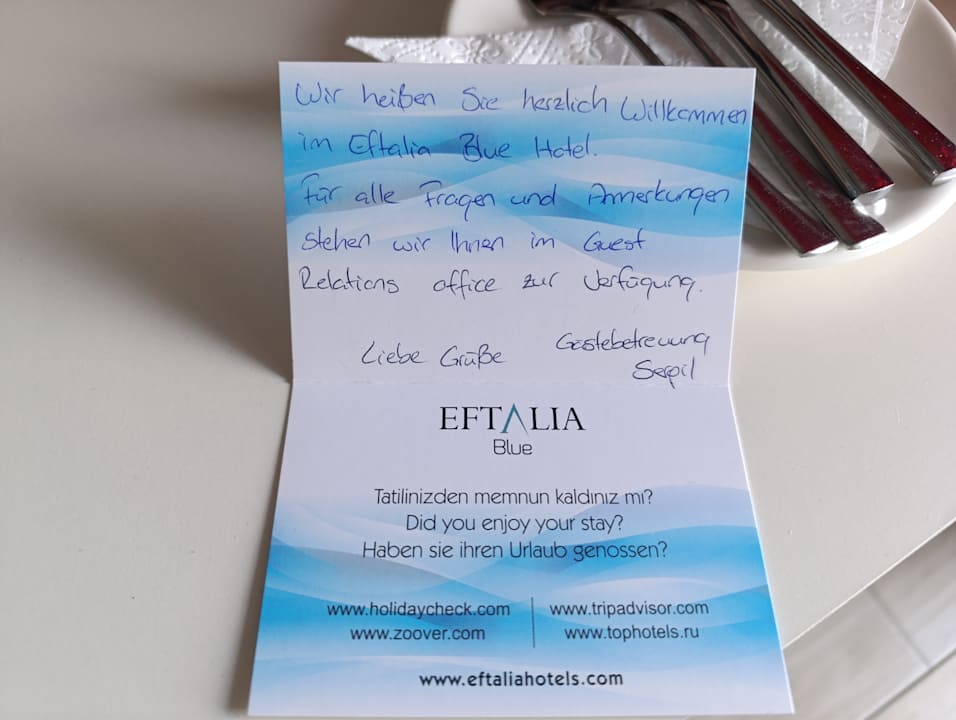 Wir heißen Sie herzlich Willkommen
im Eftalia Blue Hotel.
Für alle Fragen und Anmerkungen
stehen wir Ihnen im Guest
Relations office zur Verfügung.
Liebe Grüße Gästebetreuung
Serpil
EFTALIA
Blue
Tatilinizden memnun kaldınız mı?
Did you enjoy your stay?
Haben sie ihren Urlaub genossen?
www.holidaycheck.com www.tripadvisor.com
www.zoover.com www.tophotels.ru
www.eftaliahotels.com